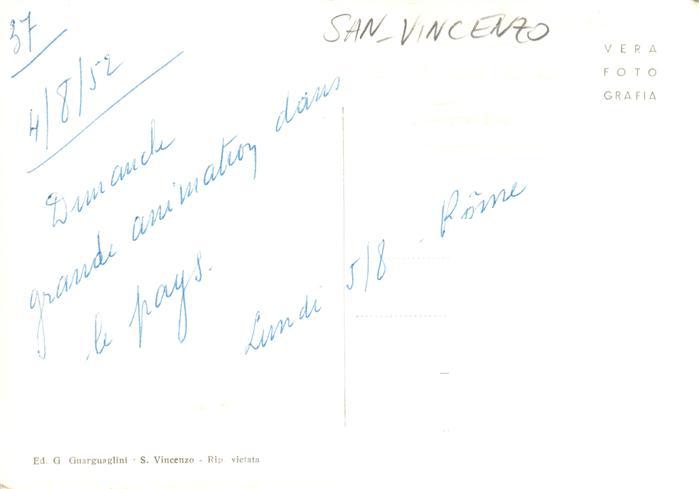 37
SAN_VINCENZO
VERA
FOTO
GRAFIA
4/8/52
Dimanche
grande animation dans
le pays.
Lundi 5/8 - Rome
Ed. G Guarguaglini · S. Vincenzo - Rip vietata